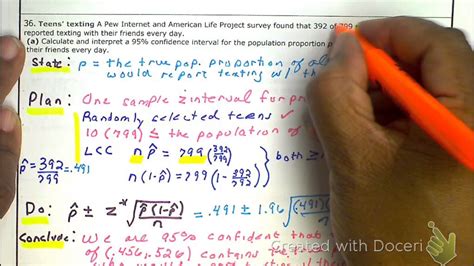 36. Teens' texting A Pew Internet and American Life Project survey found that 392 of 799
reported texting with their friends every day.
(a) Calculate and interpret a 95% confidence interval for the population proportion p
their friends every day.
State: p = the true pop. proportion of
would report texting
Plan: One sample z interval for
Randomly selected teens ✓
10(799) ≤ the population of
LCC n p̂ = 799(392/799)
both ≥
p̂ = 392/799 = .491
n(1-p̂) = 799(1-392/799)
Do: p̂ ± z* √(p̂(1-p̂)/n) = .491 ± 1.96 √((.491)(
Conclude: We are 95% confident that
of (.456, .526) contains the
Created with Doceri